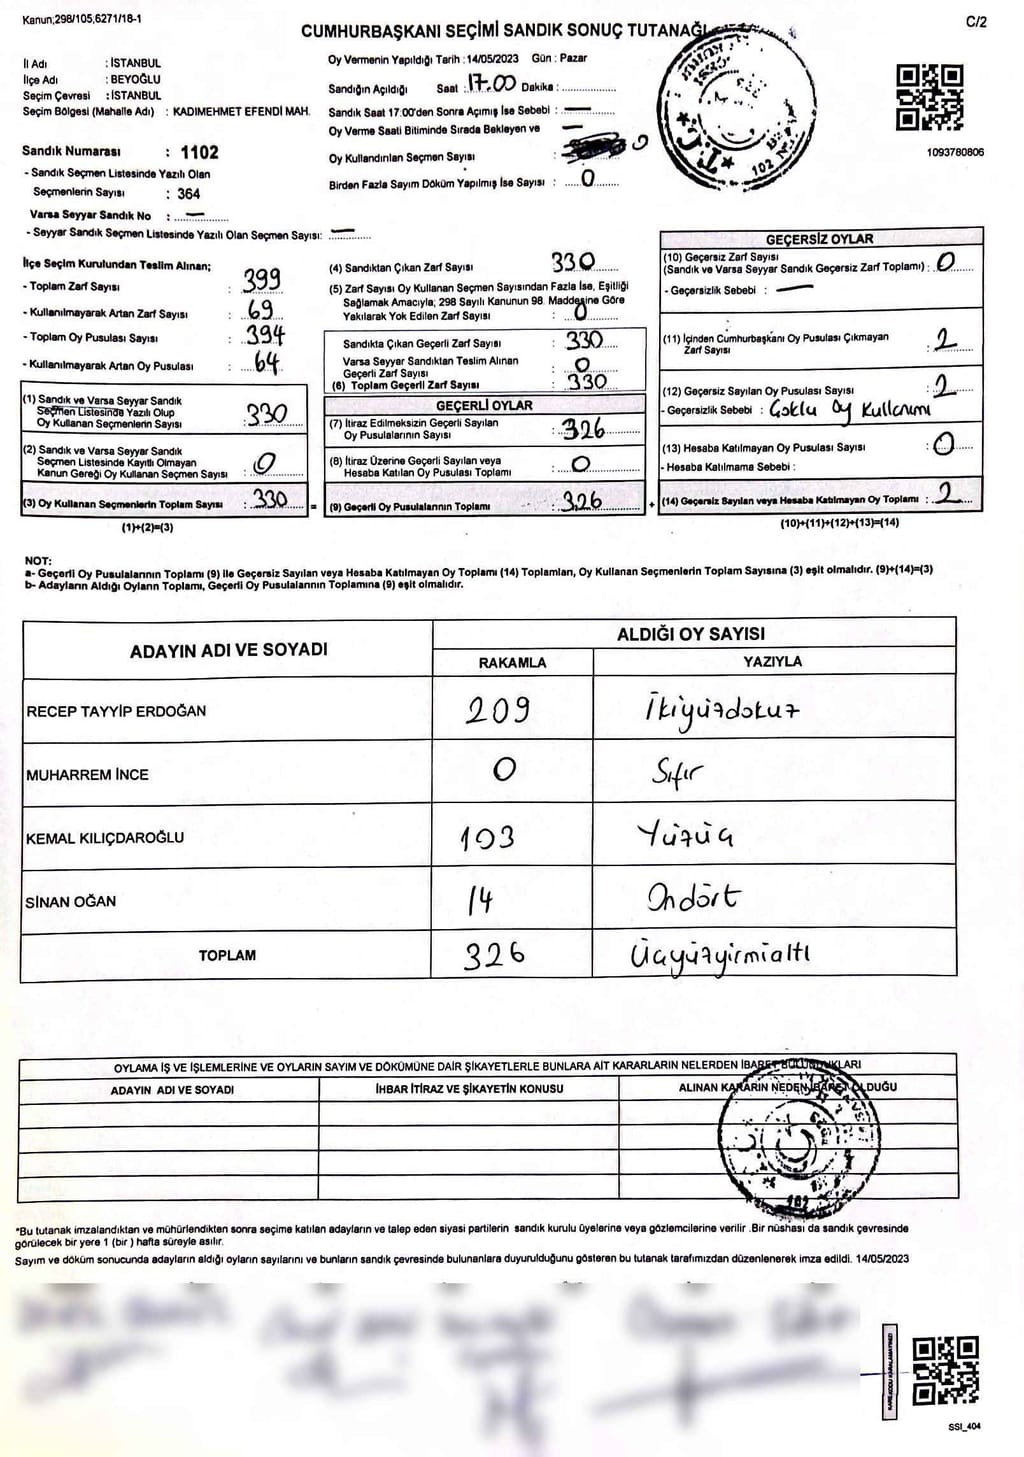 Kanun;298/105,6271/18-1
C/2
CUMHURBAŞKANI SEÇİMİ SANDIK SONUÇ TUTANAĞI
İl Adı : İSTANBUL
İlçe Adı : BEYOĞLU
Seçim Çevresi : İSTANBUL
Seçim Bölgesi (Mahalle Adı) : KADIMEHMET EFENDİ MAH.
Sandık Numarası : 1102
- Sandık Seçmen Listesinde Yazılı Olan
Seçmenlerin Sayısı : 364
Varsa Seyyar Sandık No : —
- Seyyar Sandık Seçmen Listesinde Yazılı Olan Seçmen Sayısı: —
Oy Vermenin Yapıldığı Tarih : 14/05/2023 Gün : Pazar
Sandığın Açıldığı Saat : 17.00 Dakika : ..............
Sandık Saat 17:00'den Sonra Açımış İse Sebebi : —
Oy Verme Saati Bitiminde Sırada Bekleyen ve —
Oy Kullandırılan Seçmen Sayısı : 0
Birden Fazla Sayım Döküm Yapılmış İse Sayısı : 0
1093780806
İlçe Seçim Kurulundan Teslim Alınan;
- Toplam Zarf Sayısı : 399
- Kullanılmayarak Artan Zarf Sayısı : 69
- Toplam Oy Pusulası Sayısı : 394
- Kullanılmayarak Artan Oy Pusulası : 64
(1) Sandık ve Varsa Seyyar Sandık
Seçmen Listesinde Yazılı Olup
Oy Kullanan Seçmenlerin Sayısı : 330
(2) Sandık ve Varsa Seyyar Sandık
Seçmen Listesinde Kayıtlı Olmayan
Kanun Gereği Oy Kullanan Seçmen Sayısı : 0
(3) Oy Kullanan Seçmenlerin Toplam Sayısı : 330 =
(1)+(2)=(3)
(4) Sandıktan Çıkan Zarf Sayısı 330
(5) Zarf Sayısı Oy Kullanan Seçmen Sayısından Fazla İse, Eşitliği
Sağlamak Amacıyla; 298 Sayılı Kanunun 98. Maddesine Göre
Yakılarak Yok Edilen Zarf Sayısı : 0
Sandıkta Çıkan Geçerli Zarf Sayısı : 330
Varsa Seyyar Sandıktan Teslim Alınan
Geçerli Zarf Sayısı : 0
(6) Toplam Geçerli Zarf Sayısı : 330
GEÇERLİ OYLAR
(7) İtiraz Edilmeksizin Geçerli Sayılan
Oy Pusulalarının Sayısı : 326
(8) İtiraz Üzerine Geçerli Sayılan veya
Hesaba Katılan Oy Pusulası Toplamı : 0
(9) Geçerli Oy Pusulalarının Toplamı : 326 +
GEÇERSİZ OYLAR
(10) Geçersiz Zarf Sayısı
(Sandık ve Varsa Seyyar Sandık Geçersiz Zarf Toplamı) : 0
- Geçersizlik Sebebi : —
(11) İçinden Cumhurbaşkanı Oy Pusulası Çıkmayan
Zarf Sayısı : 2
(12) Geçersiz Sayılan Oy Pusulası Sayısı : 2
- Geçersizlik Sebebi : Çoklu Oy Kullanımı
(13) Hesaba Katılmayan Oy Pusulası Sayısı : 0
- Hesaba Katılmama Sebebi :
(14) Geçersiz Sayılan veya Hesaba Katılmayan Oy Toplamı : 2
(10)+(11)+(12)+(13)=(14)
NOT:
a- Geçerli Oy Pusulalarının Toplamı (9) İle Geçersiz Sayılan veya Hesaba Katılmayan Oy Toplamı (14) Toplamları, Oy Kullanan Seçmenlerin Toplam Sayısına (3) eşit olmalıdır. (9)+(14)=(3)
b- Adayların Aldığı Oyların Toplamı, Geçerli Oy Pusulalarının Toplamına (9) eşit olmalıdır.
ADAYIN ADI VE SOYADI ALDIĞI OY SAYISI
RAKAMLA YAZIYLA
RECEP TAYYİP ERDOĞAN 209 İkiyüzdokuz
MUHARREM İNCE 0 Sıfır
KEMAL KILIÇDAROĞLU 103 Yüzüç
SİNAN OĞAN 14 Ondört
TOPLAM 326 Üçyüzyirmialtı
OYLAMA İŞ VE İŞLEMLERİNE VE OYLARIN SAYIM VE DÖKÜMÜNE DAİR ŞİKAYETLERLE BUNLARA AİT KARARLARIN NELERDEN İBARET BULUNDUKLARI
ADAYIN ADI VE SOYADI İHBAR İTİRAZ VE ŞİKAYETİN KONUSU ALINAN KARARIN NEDEN İBARET OLDUĞU
*Bu tutanak imzalandıktan ve mühürlendikten sonra seçime katılan adayların ve talep eden siyasi partilerin sandık kurulu üyelerine veya gözlemcilerine verilir .Bir nüshası da sandık çevresinde
görülecek bir yere 1 (bir ) hafta süreyle asılır.
Sayım ve döküm sonucunda adayların aldığı oyların sayılarını ve bunların sandık çevresinde bulunanlara duyurulduğunu gösteren bu tutanak tarafımızdan düzenlenerek imza edildi. 14/05/2023
KAREKODU KARALAMAYINIZ!
SSI_404